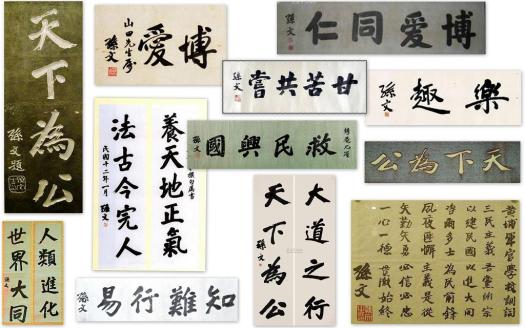 天下為公
孫文題
博愛
山田先生屬
孫文
博愛同仁
孫文
甘苦共嘗
孫文
樂趣
孫文
救民興國
孫文
天下為公
養天地正氣
法古今完人
民國十二年一月
孫文
大道之行
天下為公
孫文
人類進化
世界大同
孫文
知難行易
孫文
黃埔軍官學校訓詞
三民主義吾黨所宗
以建民國以進大同
咨爾多士為民前鋒
夙夜匪懈主義是從
矢勤矢勇必信必忠
一心一德貫徹始終
孫文